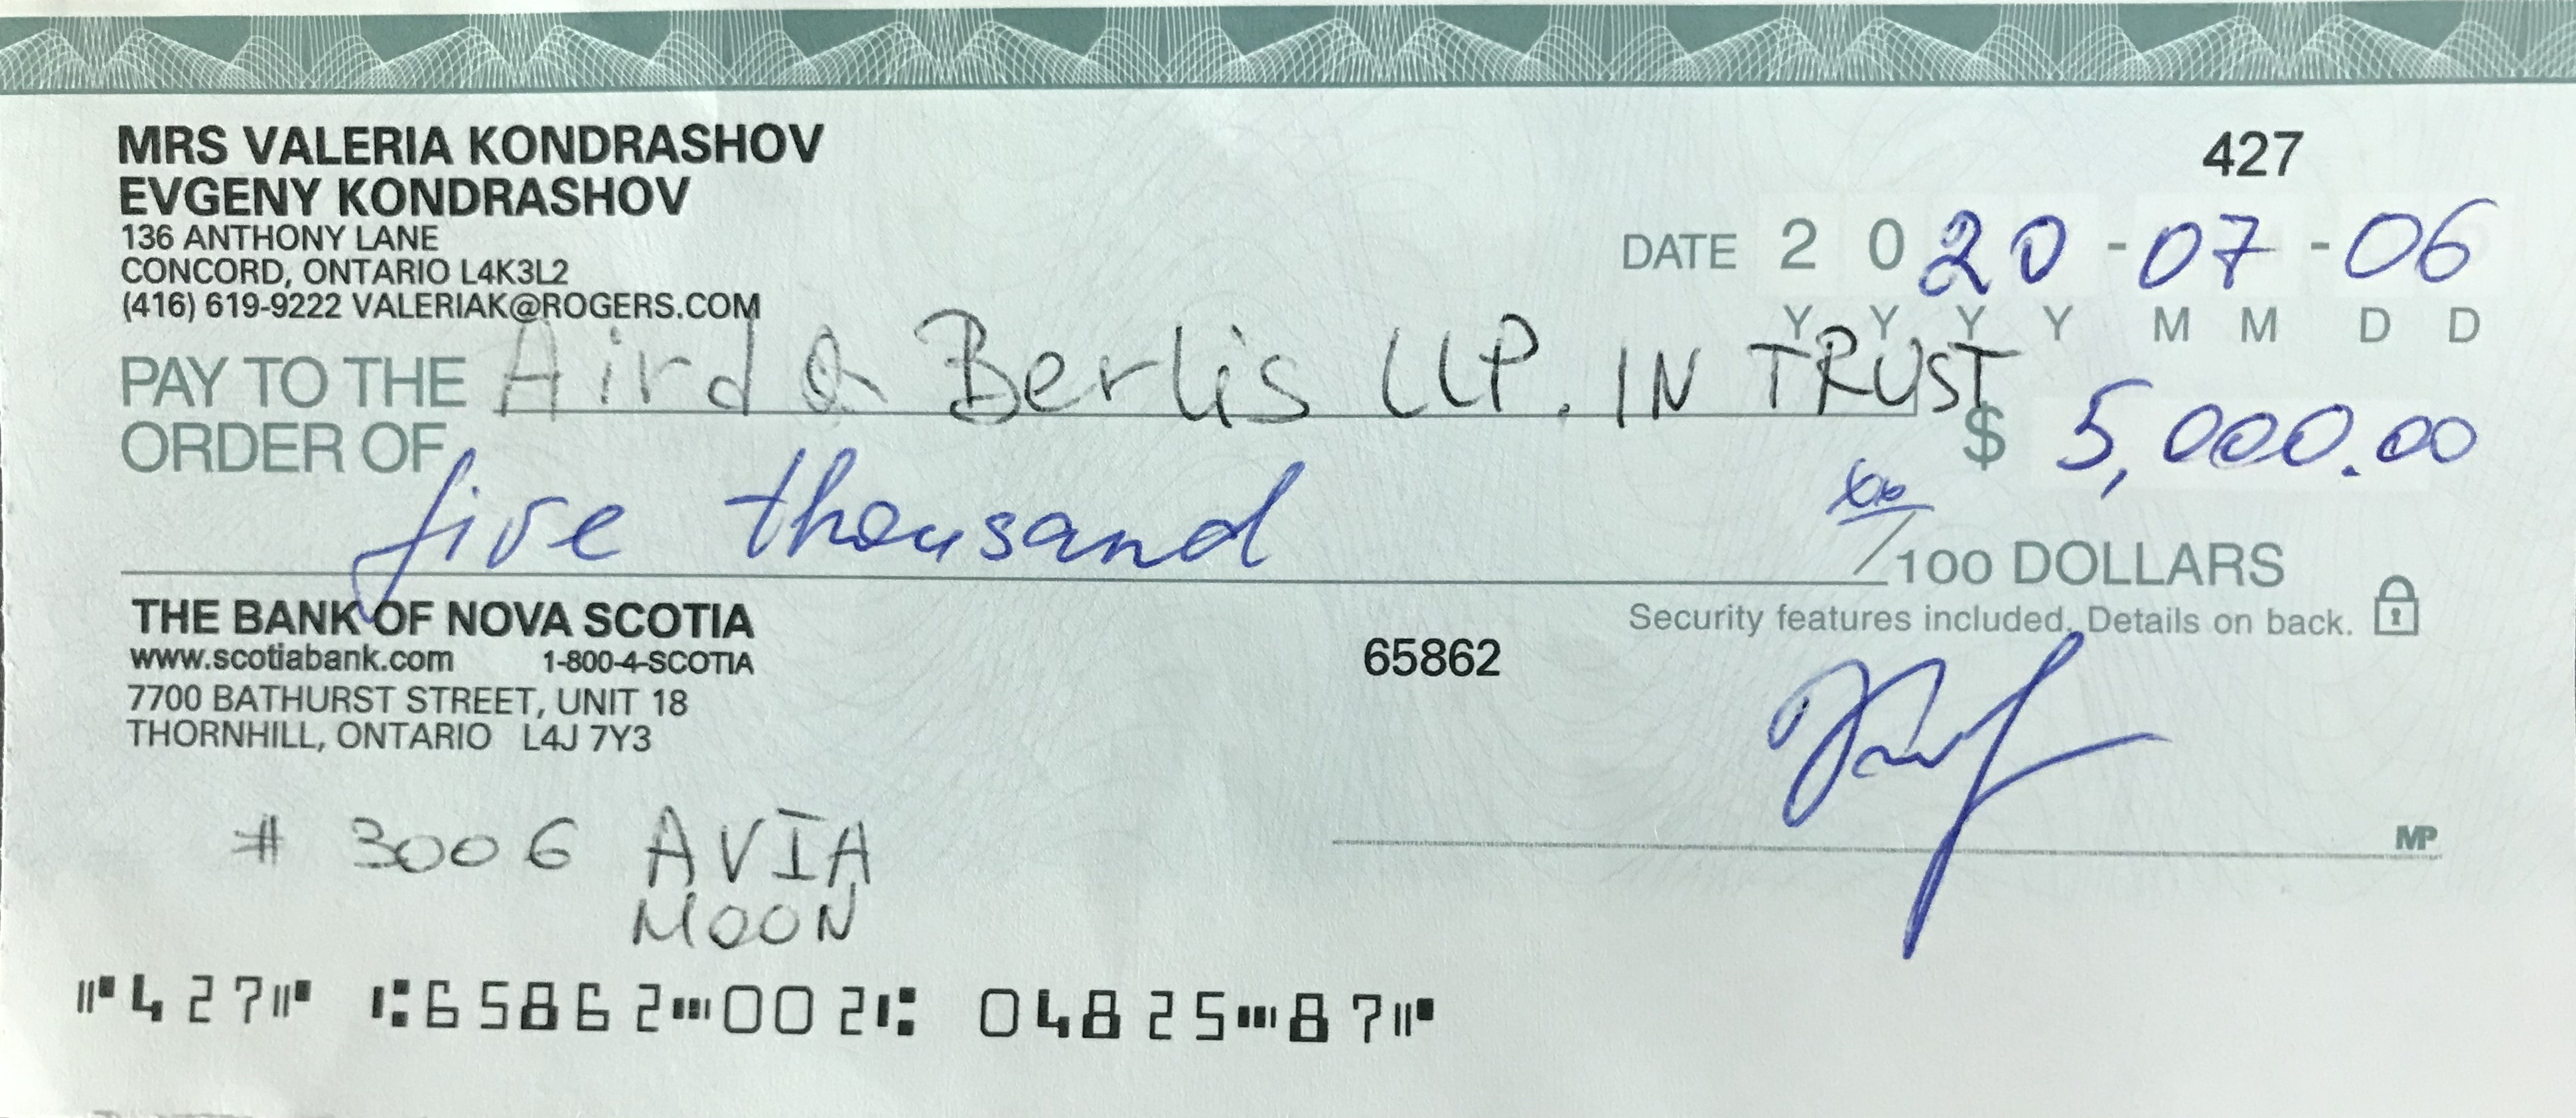 MRS VALERIA KONDRASHOV
EVGENY KONDRASHOV
136 ANTHONY LANE
CONCORD, ONTARIO L4K3L2
(416) 619-9222 VALERIAK@ROGERS.COM
427
DATE 2020-07-06
Y Y Y Y M M D D
PAY TO THE
ORDER OF
Aird & Berlis LLP. IN TRUST
$ 5,000.00
five thousand
xx/100 DOLLARS
Security features included. Details on back.
THE BANK OF NOVA SCOTIA
www.scotiabank.com 1-800-4-SCOTIA
7700 BATHURST STREET, UNIT 18
THORNHILL, ONTARIO L4J 7Y3
65862
MP
# 3006 AVIA
MOON
⑈427⑈ ⑆65862⑉002⑆ 04825⑉87⑈